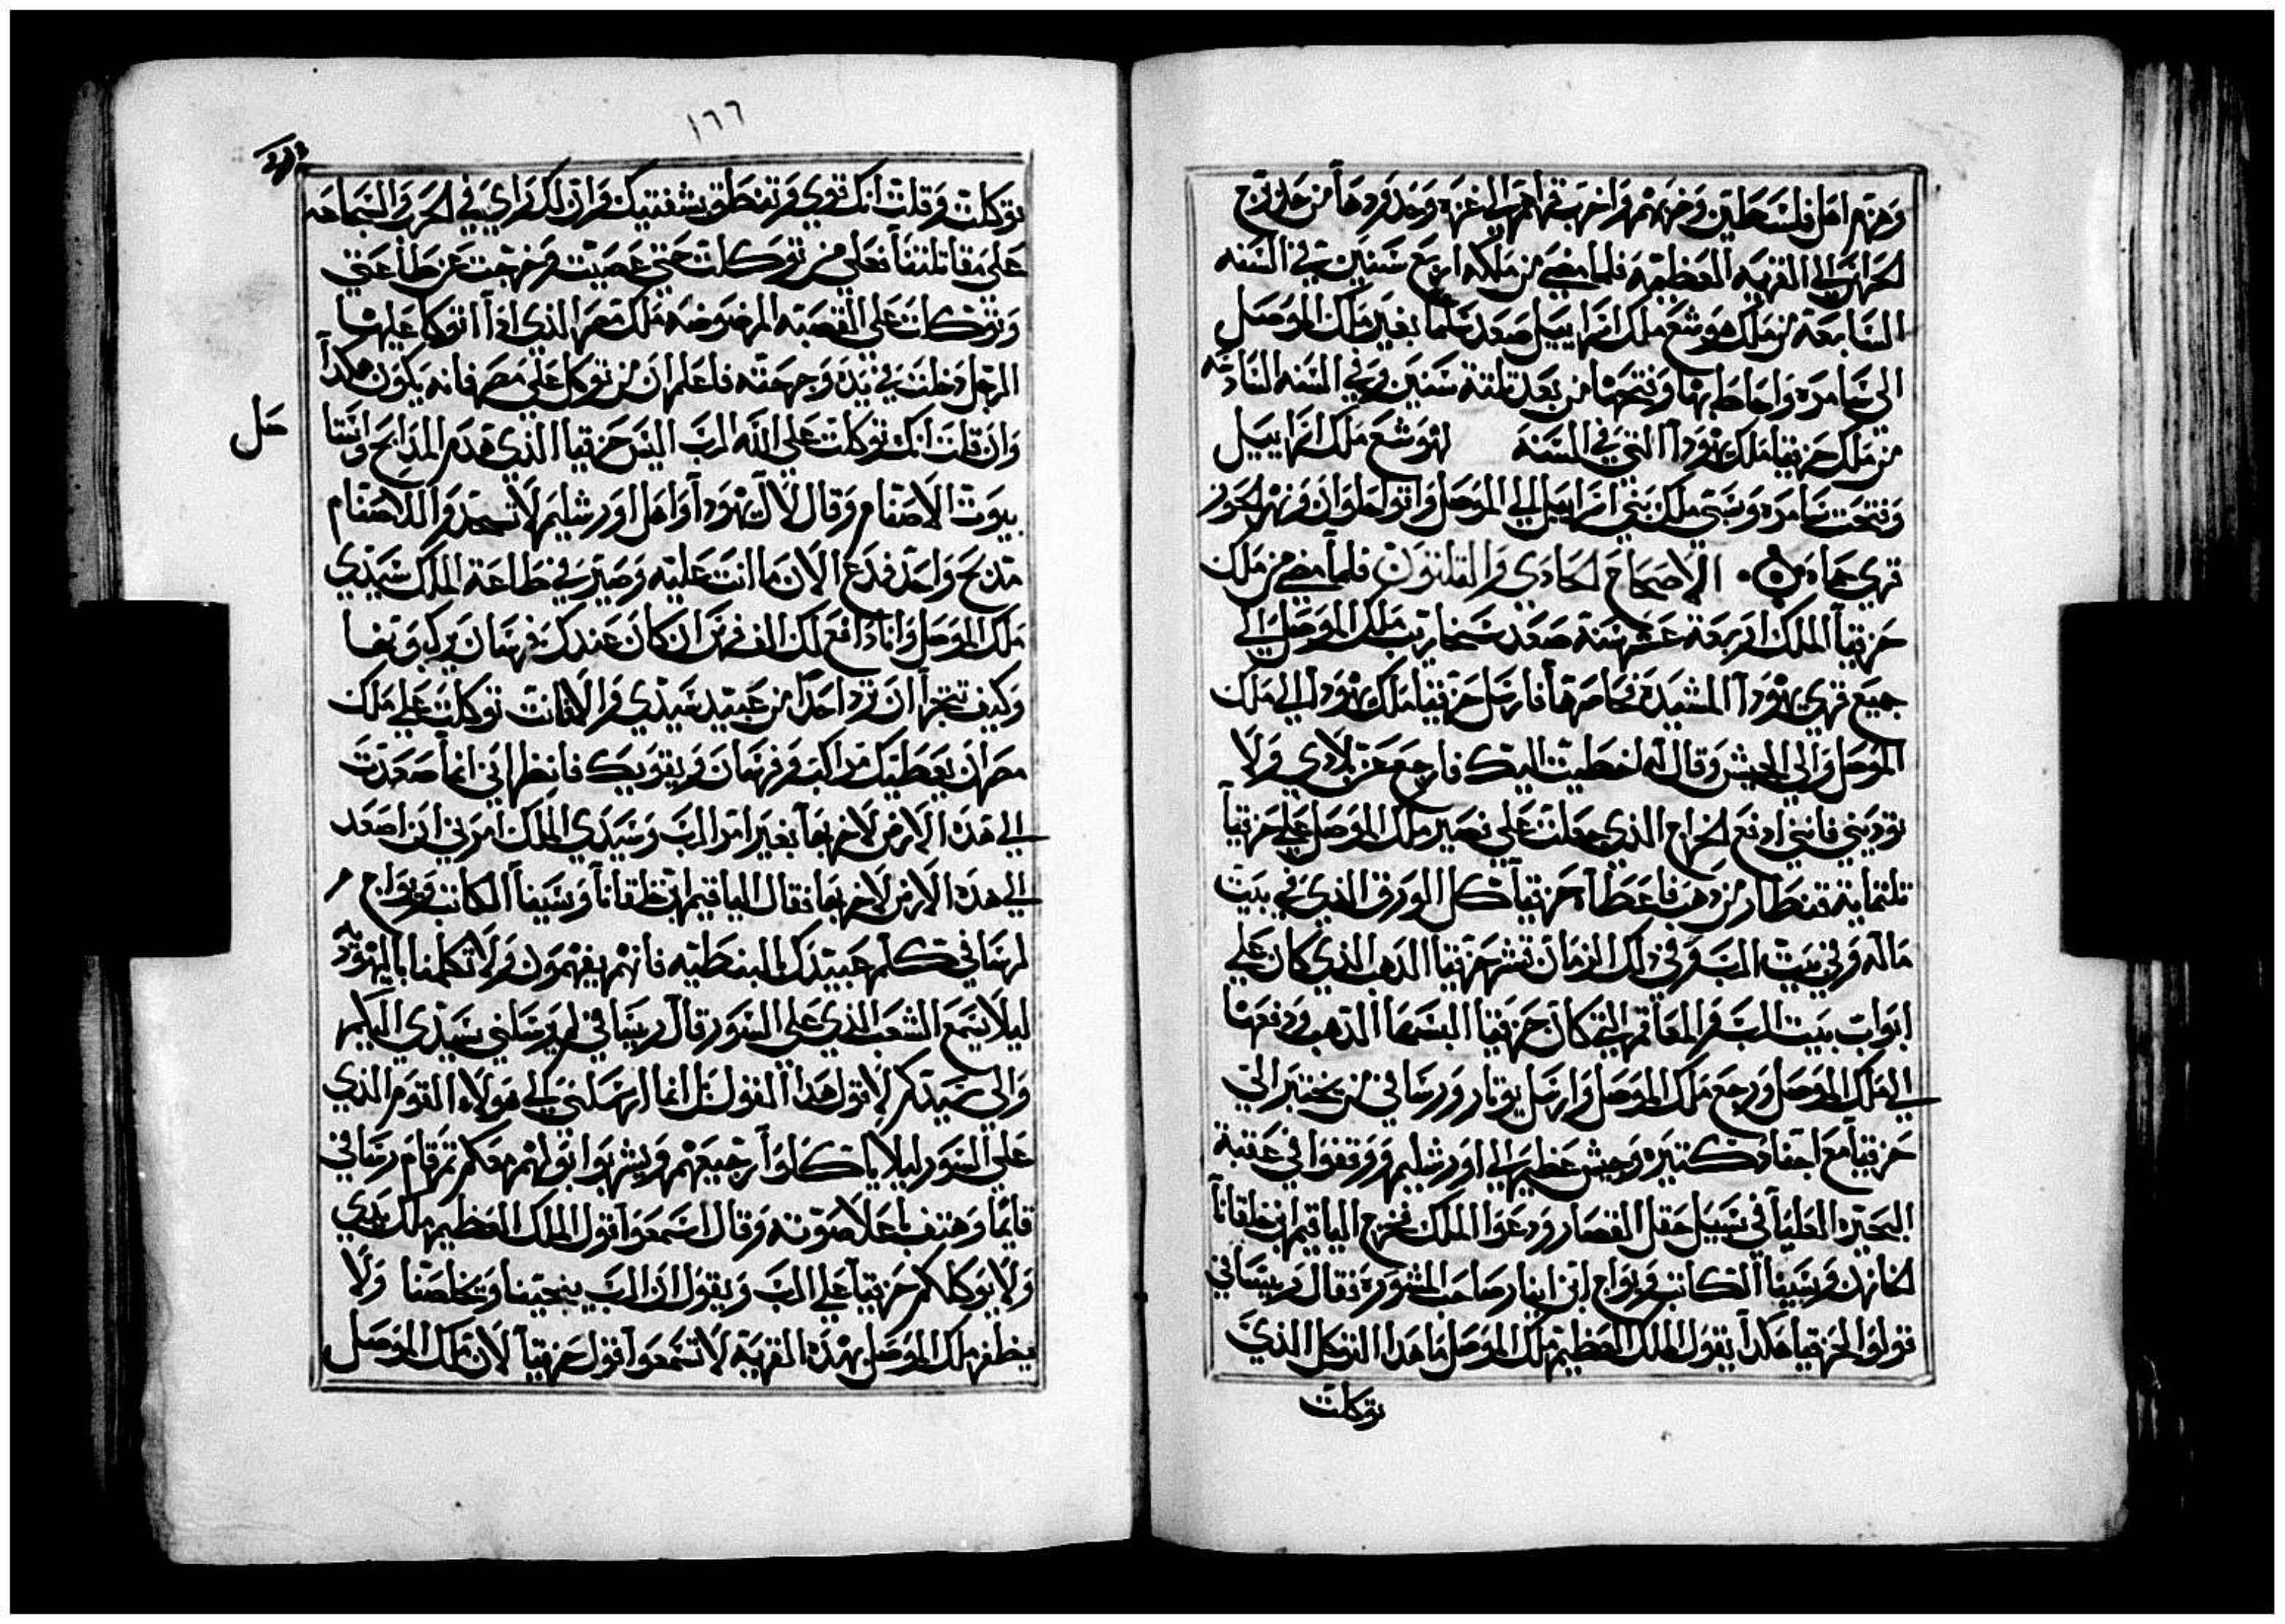 وهزم اهل فلسطين وضربهم واخرب قراهم الي غزه وحدودها من حد برج
الحراس الي القريه العظيمه فلما مضي من ملكه اربع سنين في السنه
السابعة من ملك هوشع ملك اسراييل صعد سلما بغير ملك الموصل
الي سامره واحاط بها وفتحها من بعد ثلثة سنين وفي السنه السادسه
من ملك حزقيا ملك يهودا التي في السنه لهوشع ملك اسراييل
وفتحت سامره وسبي ملك بني اسراييل الي الموصل واتوا حلوان ونهر الجوز
قري ماه الاصحاح الحادي والثلثون فلما مضي من ملك
حزقيا الملك اربعة عشر سنة صعد سنحاريب ملك الموصل الي
جميع قري يهودا المشيده فحاصرها فارسل حزقيا ملك يهودا الي ملك
الموصل والي الجيش وقال له اخطيت اليك فارجع عن بلادي ولا
توديني فانني ادفع الخراج الذي جعلت علي فصير ملك الموصل علي حزقيا
ثلثماية قنطار من ذهب فاعطا حزقيا كل الورق الذي في بيت
ماله وفي بيت الرب وفي ذلك الزمان قشر حزقيا الذهب الذي كان علي
ابواب بيت الرب والمعاقم التي كان حزقيا البسها الذهب ودفعها
الي ملك الموصل ورجع ملك الموصل وارسل يوتار ورساقي من يختبر الي
حزقيا مع اجناد كتيره وجيش عظيم الي اورشليم ووقفوا في عقبة
البحيره العليا في سبيل حقل القصار ودعوا الملك فخرج الياقيم ابن خلقانا
الخازن وسبنا الكاتب ويواخ ابن ايناز صاحب المشورة فقال ربساقي
قولوا لحزقيا هكذا يقول الملك العظيم ملك الموصل ما هذا التوكل الذي
توكلت
١٦٦
توكلت وقلت انك قوي وتنطلق بشفتيك وان لك راي في الحرب والشجاعه
علي مقاتلتنا فعلي من توكلت حتي عصيت وخرجت عن طاعتي
وتوكلت علي القصبه المرضوضه ملك مصر الذي اذا اتوكا عليها
الرجل دخلت في يده وجرحته فاعلم ان من توكل علي مصر فانه يكون هكذا
وان قلت انك توكلت علي الله الرب اليس حزقيا الذي هدم المذابح وافتا
حل
بيوت الاصنام وقال لال يهودا واهل اورشليم لا تسجدوا للاصنام
مدبح واحد فدع الان ما انت عليه وصير في طاعة الملك سيدي
ملك الموصل وانا دافع لك الف فرس ان كان عندك فرسان يركبونها
وكيف تجترا ان ترد احدا من عبيد سيدي والا فانت توكلت علي ملك
مصر ان يعطيك مراكب وفرسان ويقويك فانظر اني انما صعدت
الي هذه الارض لاخربها بغير امر الرب وسيدي الملك امرني ان اصعد
الي هذه الارض لاخربها فقال الياقيم ابن خلقانا وسبنا الكاتب ويواخ
لرساقي كلم عبيدك بالنبطيه فانهم يفهمون ولا تكلمنا باليهوديه
ليلا يسمع الشعب الذي علي السور قال ربساقي لم يرسلني سيدي اليكم
والي سيدكم لاقول هذا القول بل انما ارسلني الي هولاء القوم الذي
علي السور ليلا ياكلوا رجيعهم ويشربوا ابوالهم معكم ثم قام رساقي
قايما وهتف باعلا صوته وقال اسمعوا قول الملك العظيم ملك يدي
ولا يوكلكم حزقيا علي الرب ويقول ان الرب ينجينا ويخلصنا ولا
يظفر ملك الموصل بهذه القريه لا تسمعوا قول حزقيا لان ملك الموصل